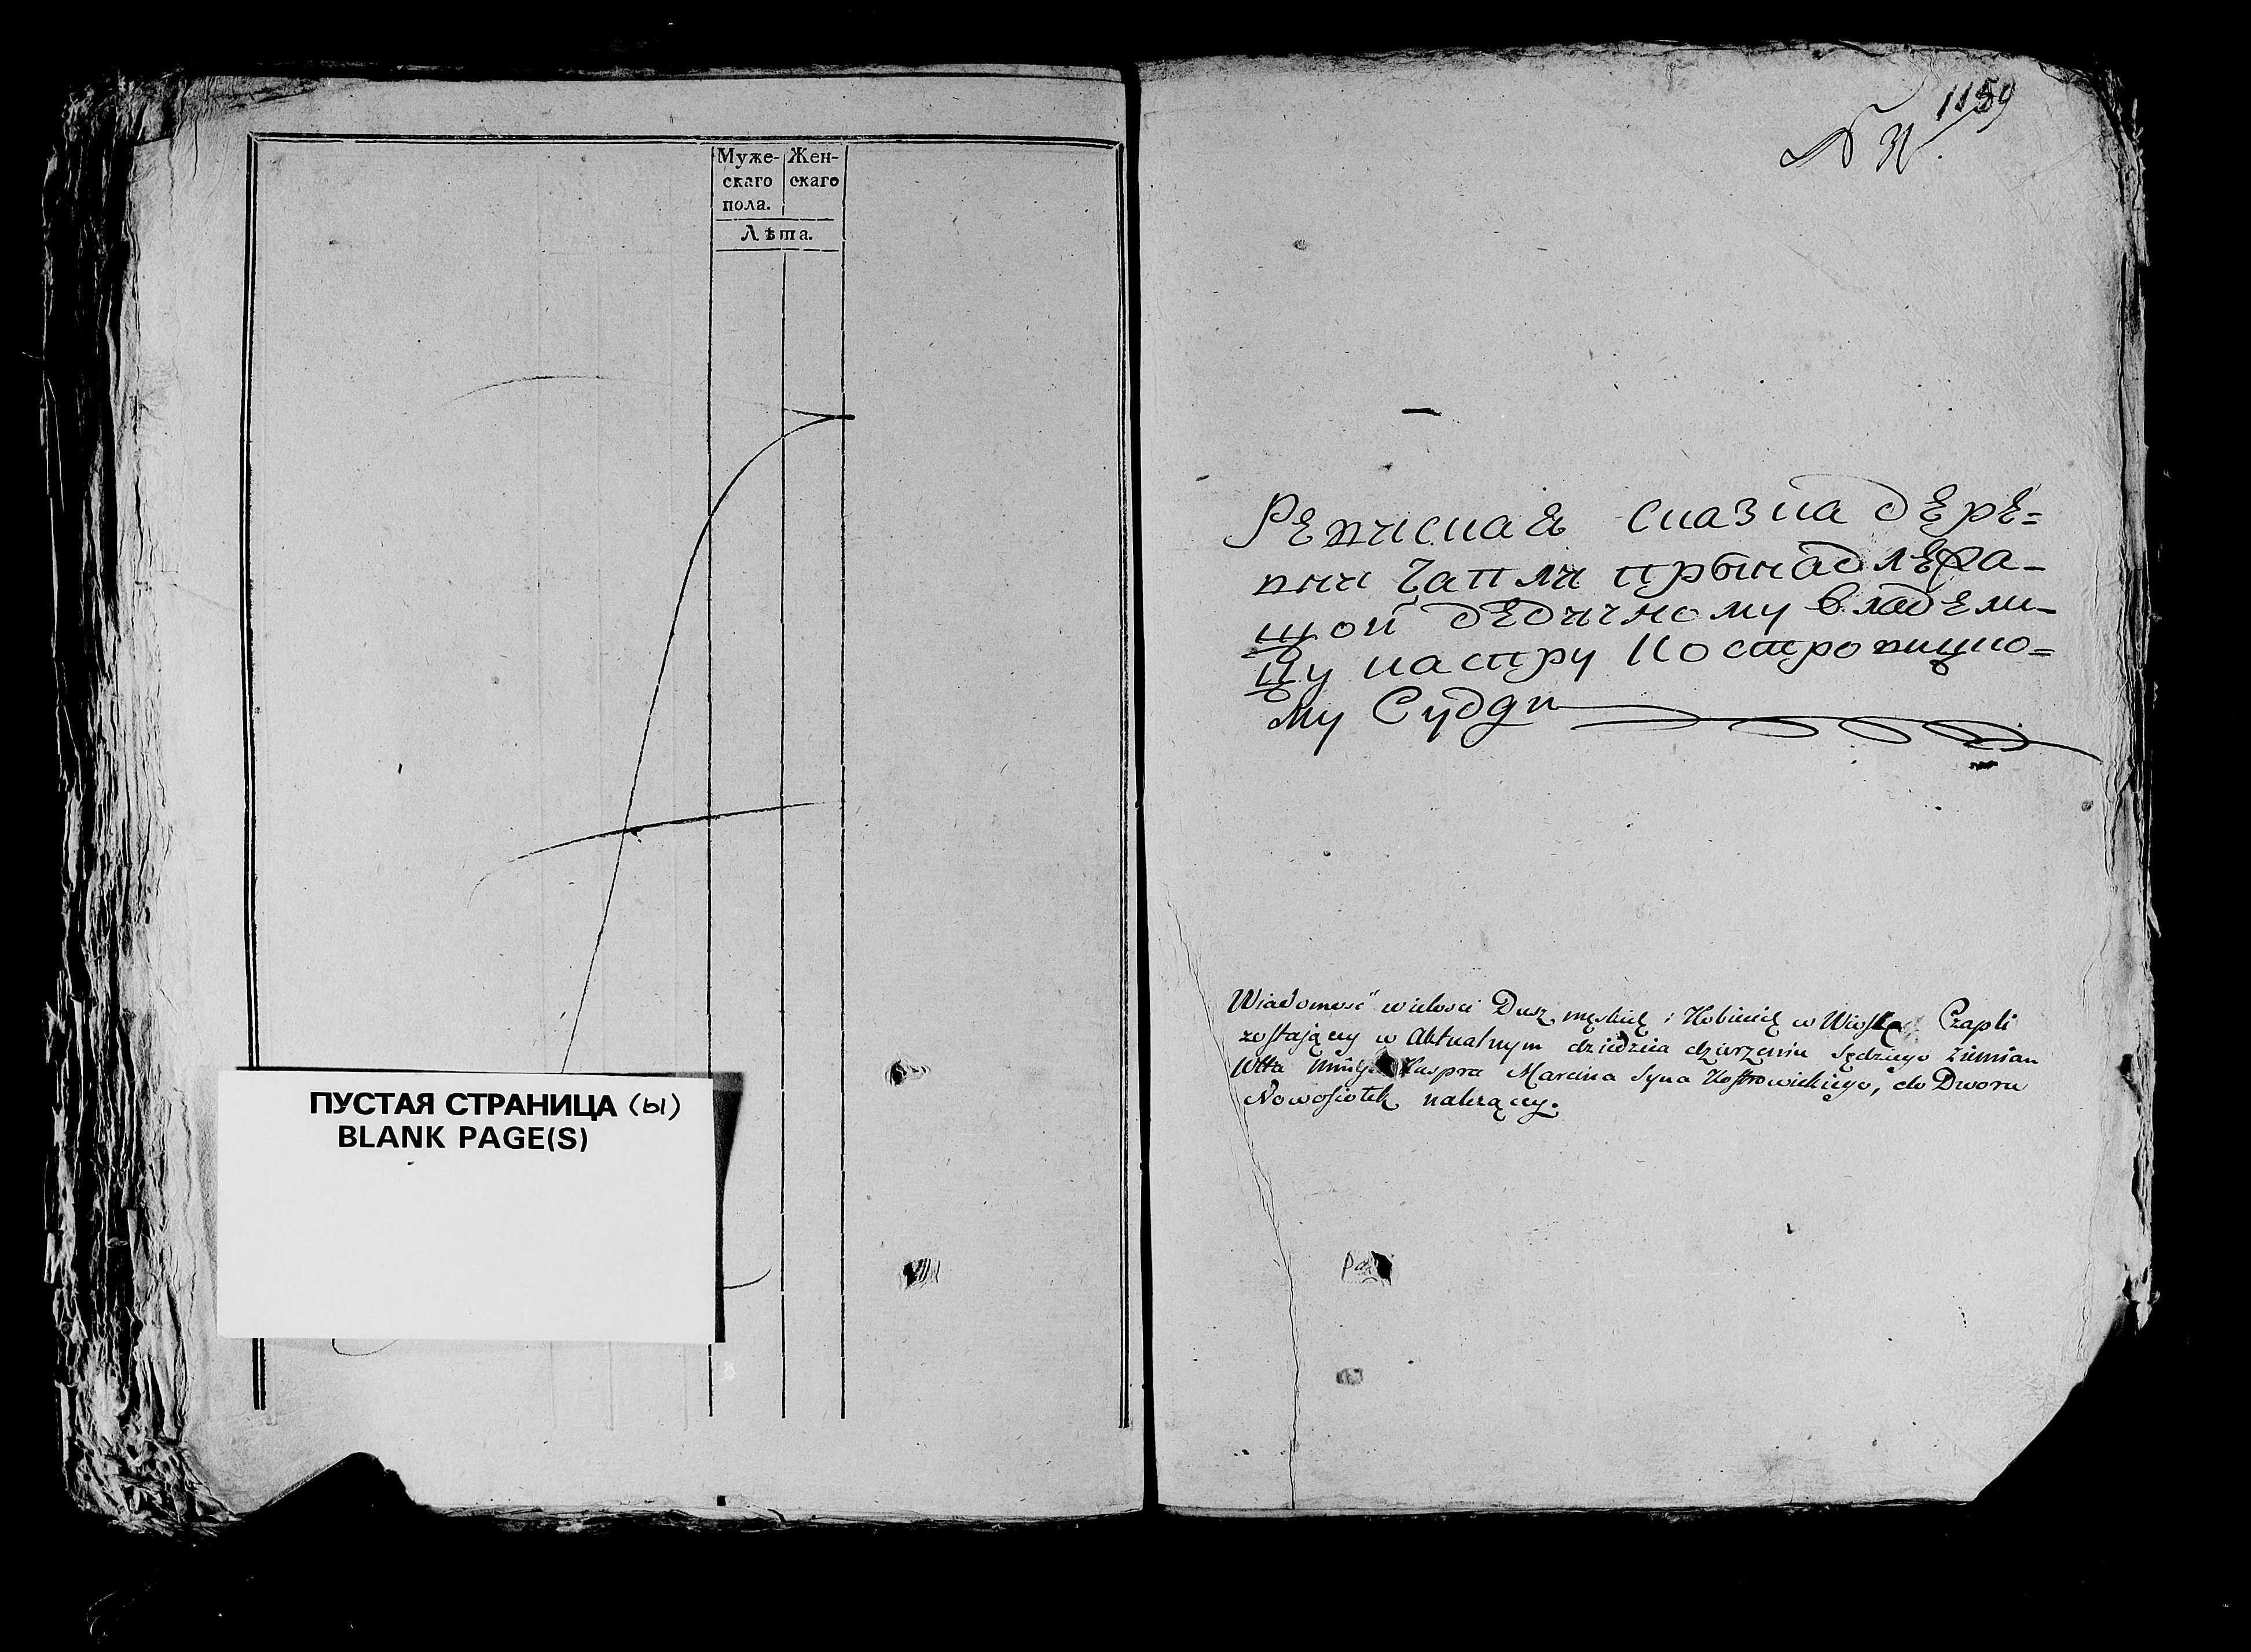 Муже- Жен-
скаго скаго
пола.
Лѣта.
ПУСТАЯ СТРАНИЦА (ы)
BLANK PAGE(S)
1159
Ревиская сказка дере=
вни Чапли прынадлежа-
щой дедичному владели-
цу каспру Костровицко=
му Судди
Wiadomość wielości Dusz męskich i Kobiecich w Wiosce Czapli
zostającey w Aktualnym dziedzica dzierzeniu Sędziego Ziemian
Kaspra Marcina Syna Kostrowickiego, do Dworu
Nowosiołek należącey.